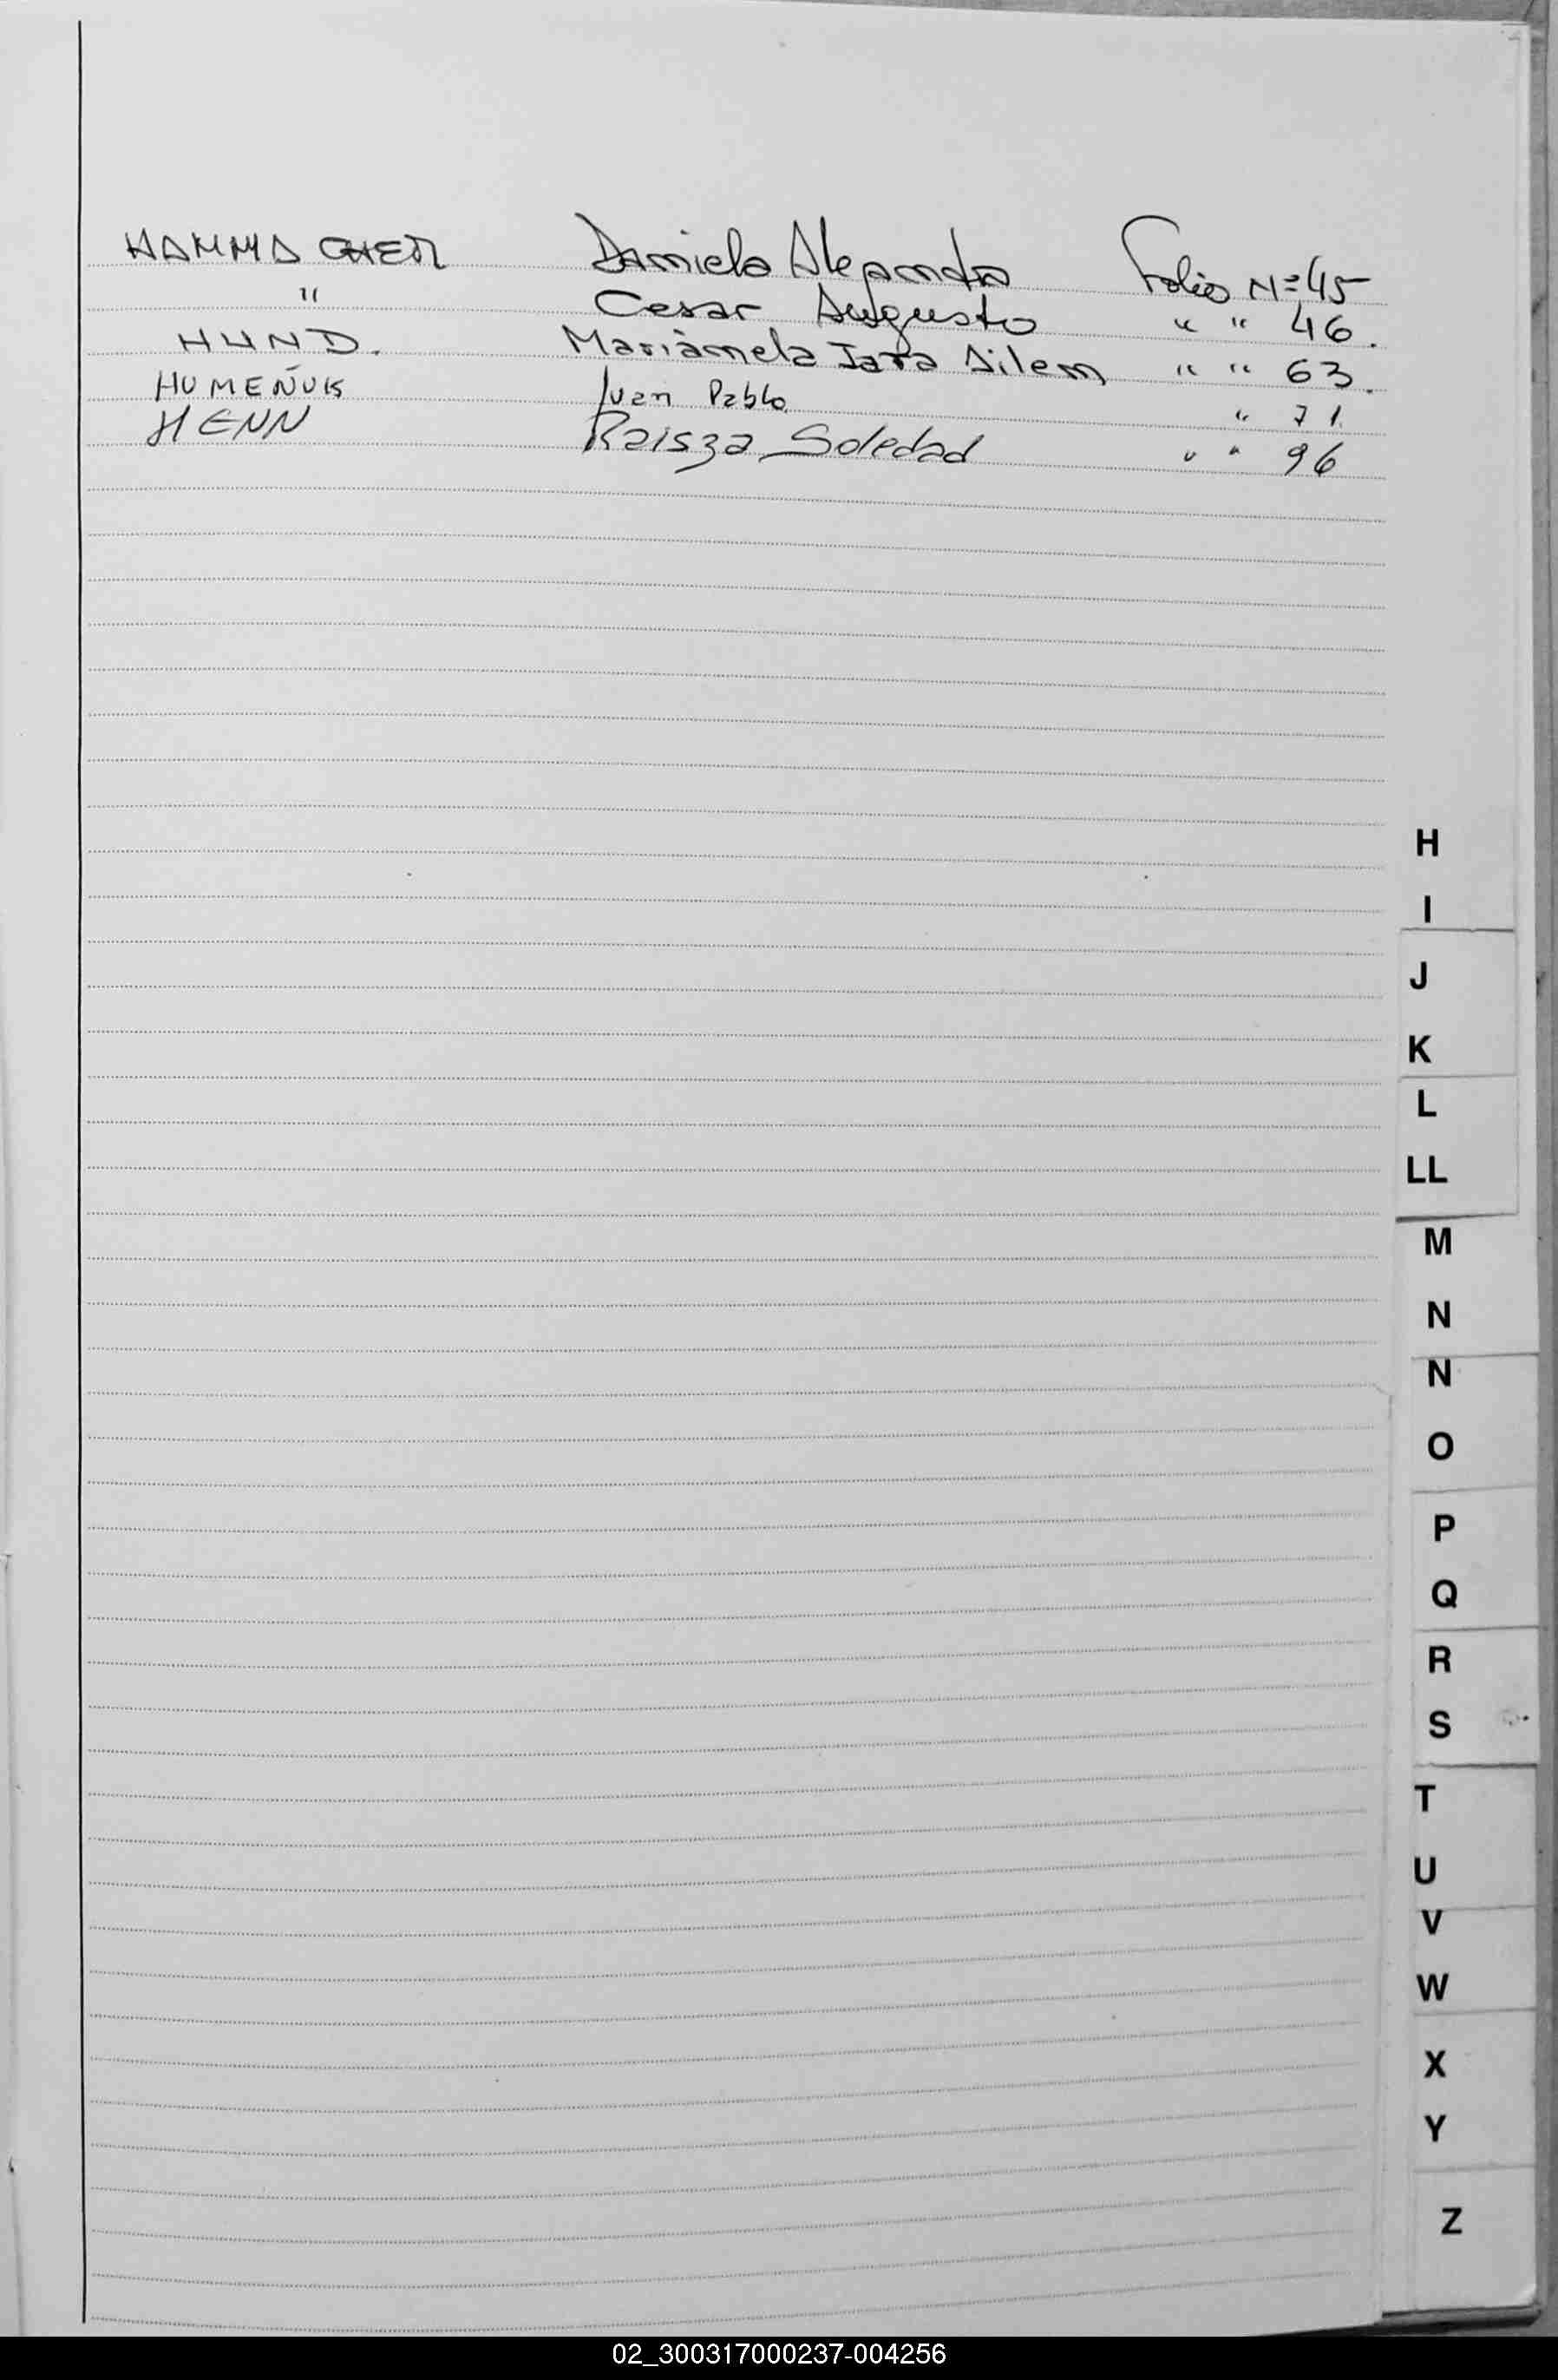 HAMMACHER Daniela Alejandra Folio Nº 45
" Cesar Augusto " " 46.
HUND. Marianela Jara Ailem " " 63.
HUMEÑUK Juan Pablo. " 71.
HENN Raisza Soledad " " 96
H
I
J
K
L
LL
M
N
N
O
P
Q
R
S
T
U
V
W
X
Y
Z
02_300317000237-004256